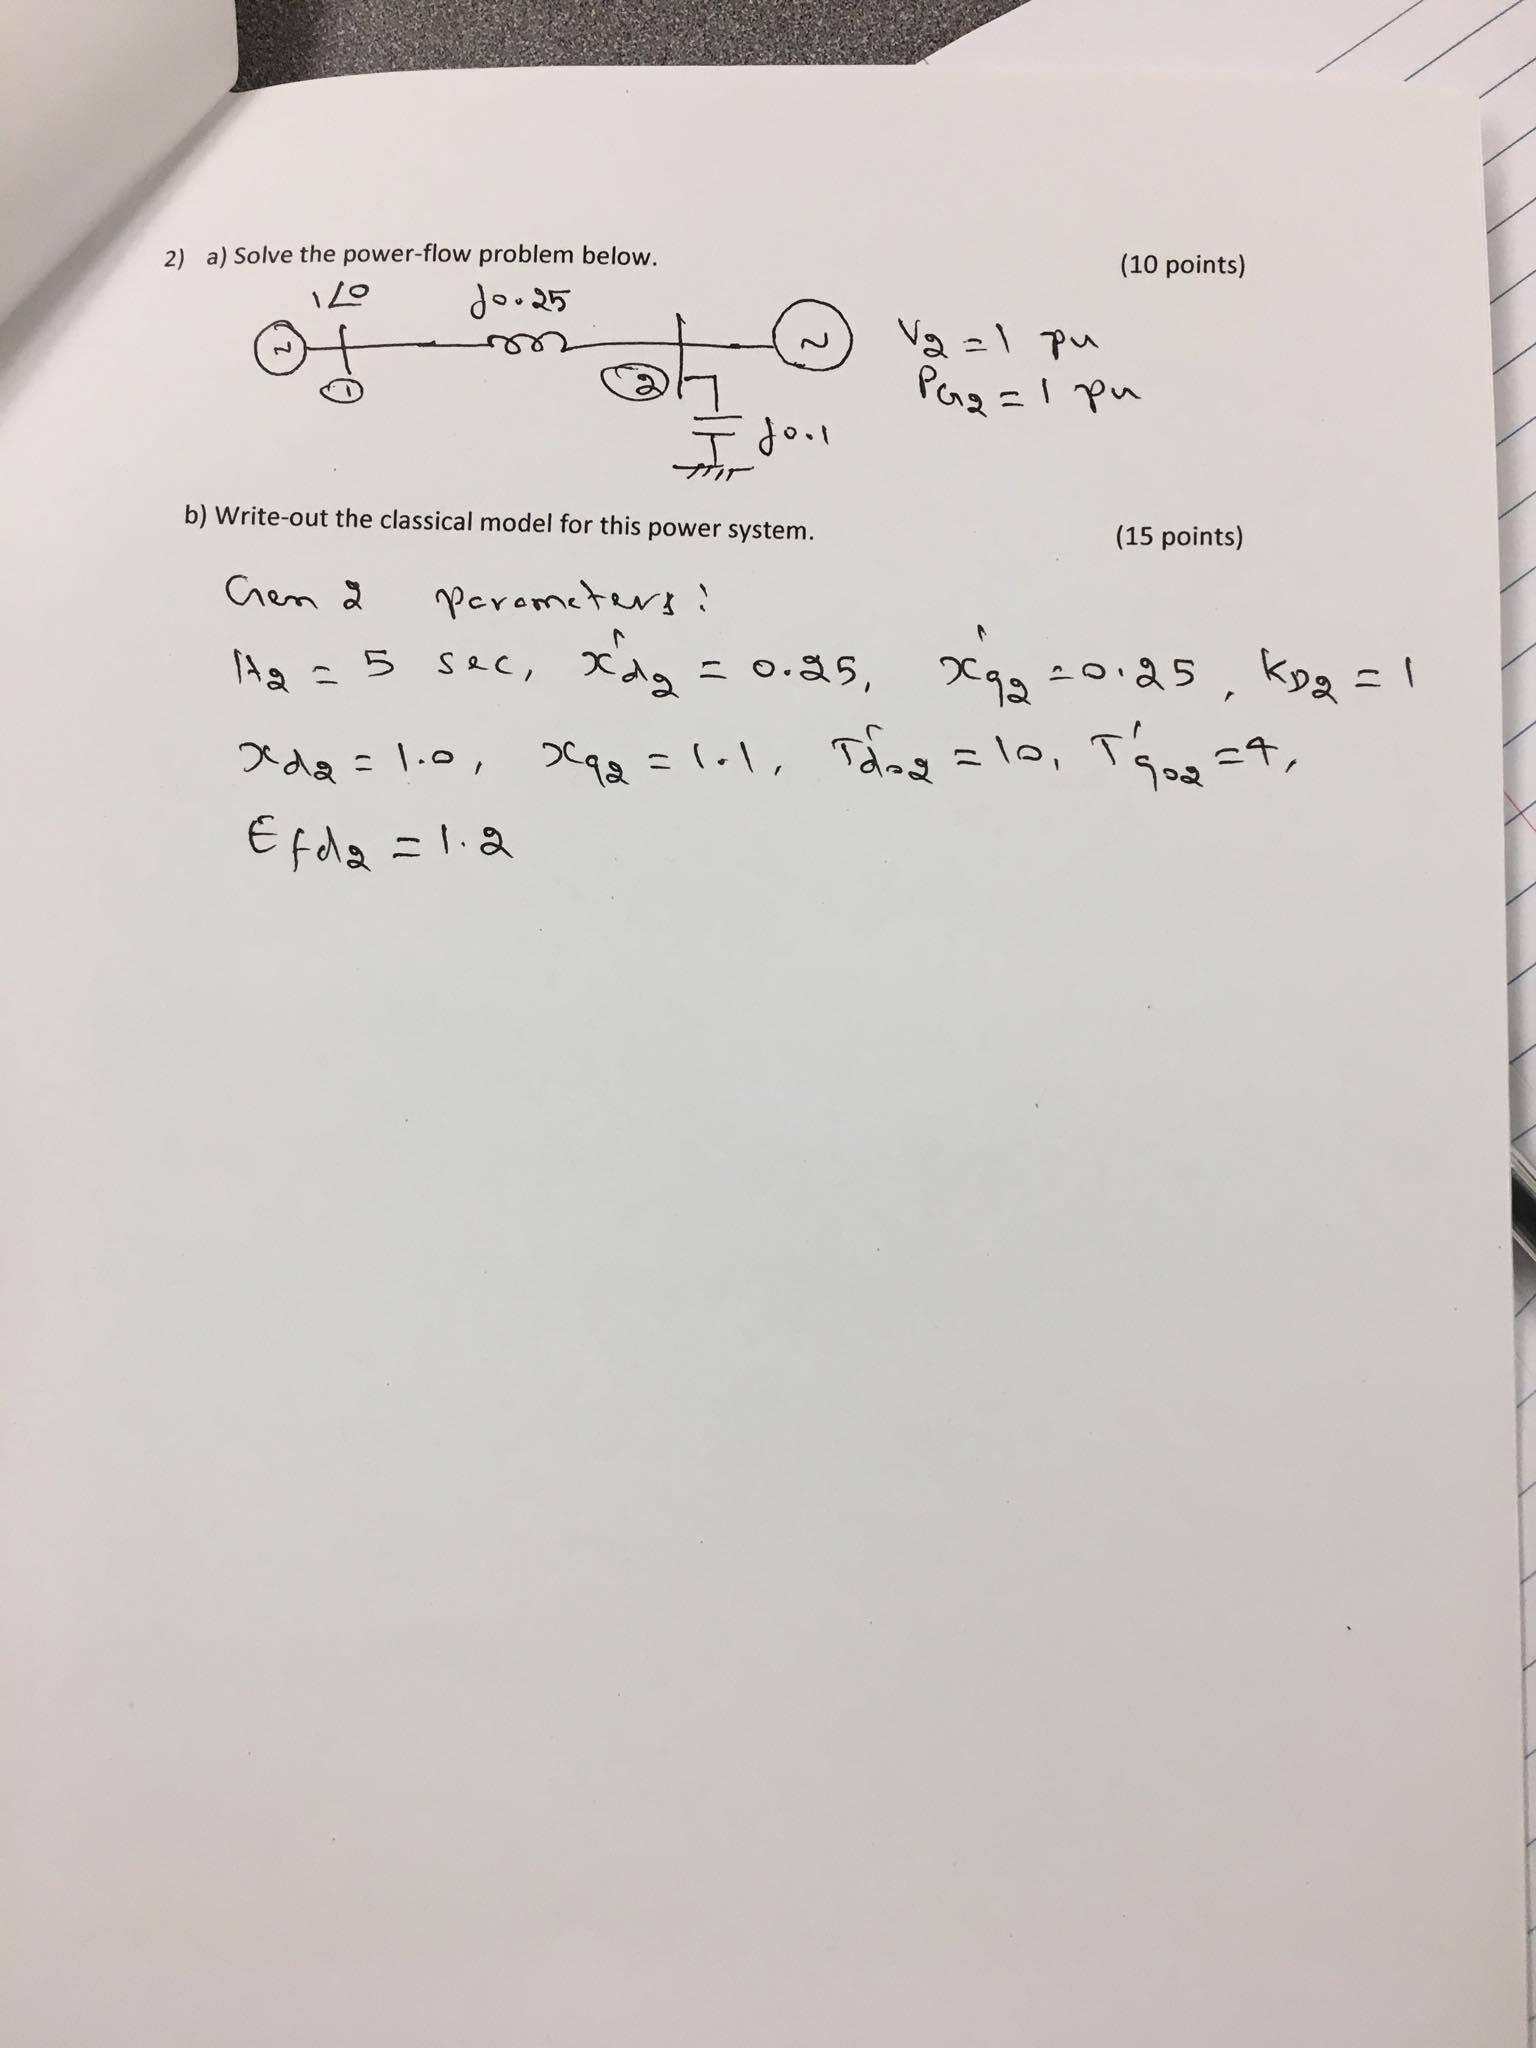 2) a) Solve the power-flow problem below. (10 points)
1∠0 j0.25
V2 = 1 pu
PG2 = 1 pu
1 2
j0.1
b) Write-out the classical model for this power system. (15 points)
Gen 2 parameters:
H2 = 5 sec, x'd2 = 0.25, x'q2 = 0.25, KD2 = 1
xd2 = 1.0, xq2 = 1.1, T'do2 = 10, T'qo2 = 4,
Efd2 = 1.2